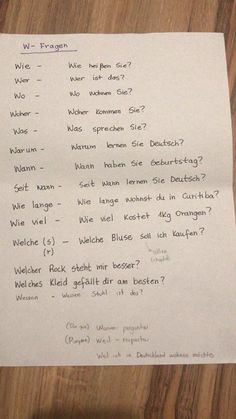 W- Fragen
Wie - Wie heißen Sie?
Wer - Wer ist das?
Wo - Wo wohnen Sie?
Woher - Woher kommen Sie?
Was - Was sprechen Sie?
Warum - Warum lernen Sie Deutsch?
Wann - Wann haben Sie Geburtstag?
Seit wann - Seit wann lernen Sie Deutsch?
Wie lange - Wie lange wohnst du in Curitiba?
Wie viel - Wie viel kostet 1kg Orangen?
Welche (s) - Welche Bluse soll ich kaufen?
(r)
sollen
Welcher Rock steht mir besser?
Welches Kleid gefällt dir am besten?
Wessen - Wessen Stuhl ist das?
Warum - perguntar
(Porque) Weil - resposta
Weil ich in Deutschland wohnen möchte